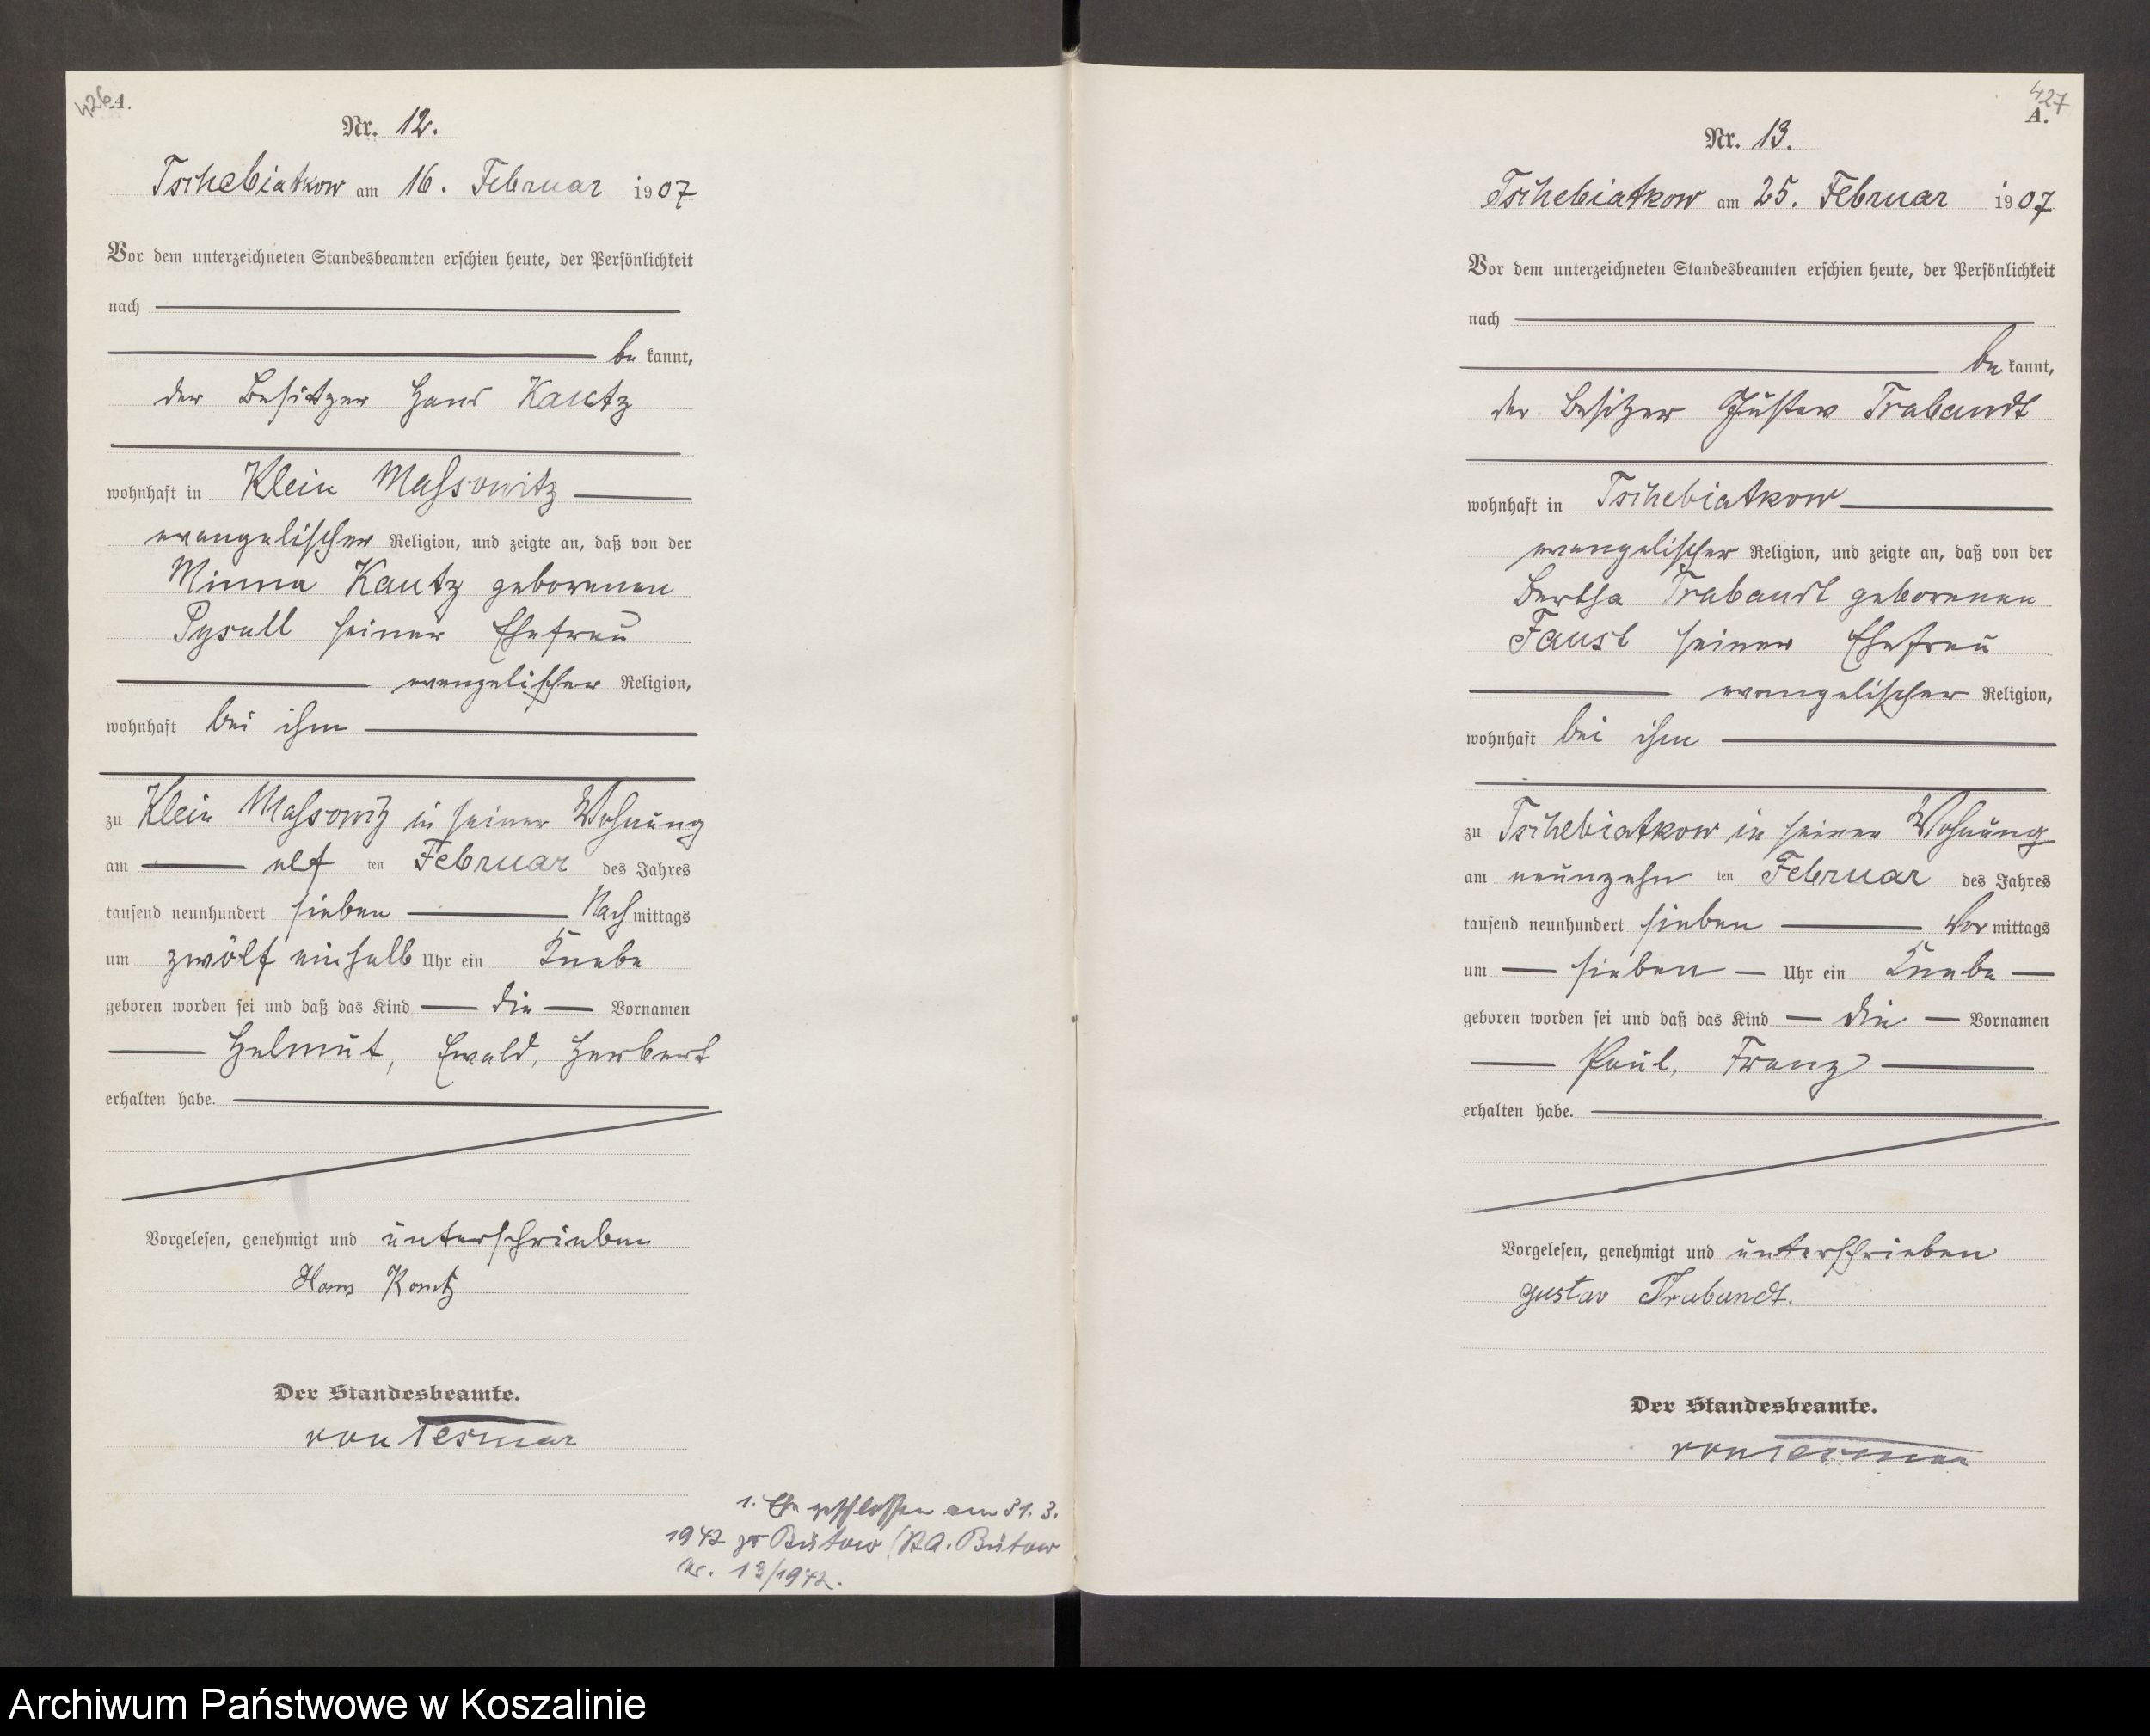 426
A.
Nr. 12.
Tschebiatkow am 16. Februar 1907
Vor dem unterzeichneten Standesbeamten erschien heute, der Persönlichkeit
nach
be kannt,
der Besitzer Hans Kautz
wohnhaft in Klein Massowitz
evangelischer Religion, und zeigte an, daß von der
Minna Kautz geborenen
Pysall seiner Ehefrau
evangelischer Religion,
wohnhaft bei ihm
zu Klein Massowitz in seiner Wohnung
am elf ten Februar des Jahres
tausend neunhundert sieben Nach mittags
um zwölf einhalb Uhr ein Knabe
geboren worden sei und daß das Kind die Vornamen
Helmut, Ewald, Herbert
erhalten habe.
Vorgelesen, genehmigt und unterschrieben
Hans Kautz
Der Standesbeamte.
von Tesmar
1. Ehe geschlossen am 31. 3.
1942 zu Bütow, StA. Bütow
Nr. 13/1942.
427
A.
Nr. 13.
Tschebiatkow am 25. Februar 1907
Vor dem unterzeichneten Standesbeamten erschien heute, der Persönlichkeit
nach
be kannt,
der Besitzer Gustav Trabandt
wohnhaft in Tschebiatkow
evangelischer Religion, und zeigte an, daß von der
Bertha Trabandt geborenen
Faust seiner Ehefrau
evangelischer Religion,
wohnhaft bei ihm
zu Tschebiatkow in seiner Wohnung
am neunzehn ten Februar des Jahres
tausend neunhundert sieben Vor mittags
um sieben Uhr ein Knabe
geboren worden sei und daß das Kind die Vornamen
Paul, Franz
erhalten habe.
Vorgelesen, genehmigt und unterschrieben
Gustav Trabandt.
Der Standesbeamte.
von Tesmar
Archiwum Państwowe w Koszalinie